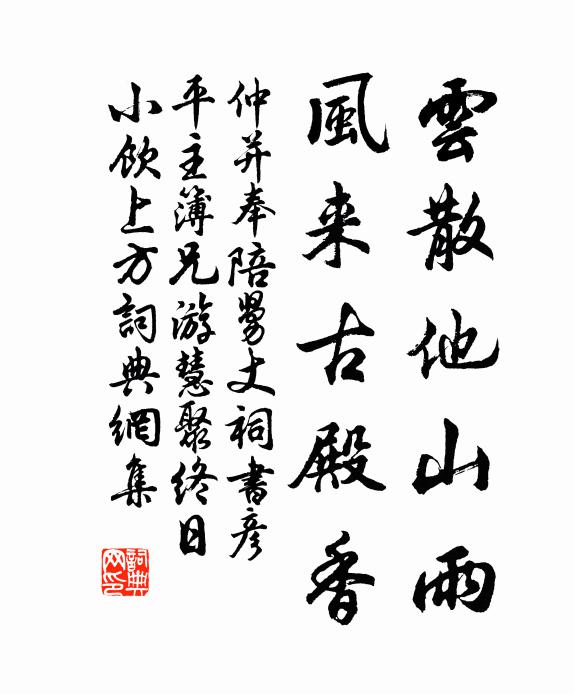 雲散他山雨
風来古殿香
仲并奉陪舅丈祠書彦
平主簿兄游慧聚终日
小飲上方詞典網集
詞典網印